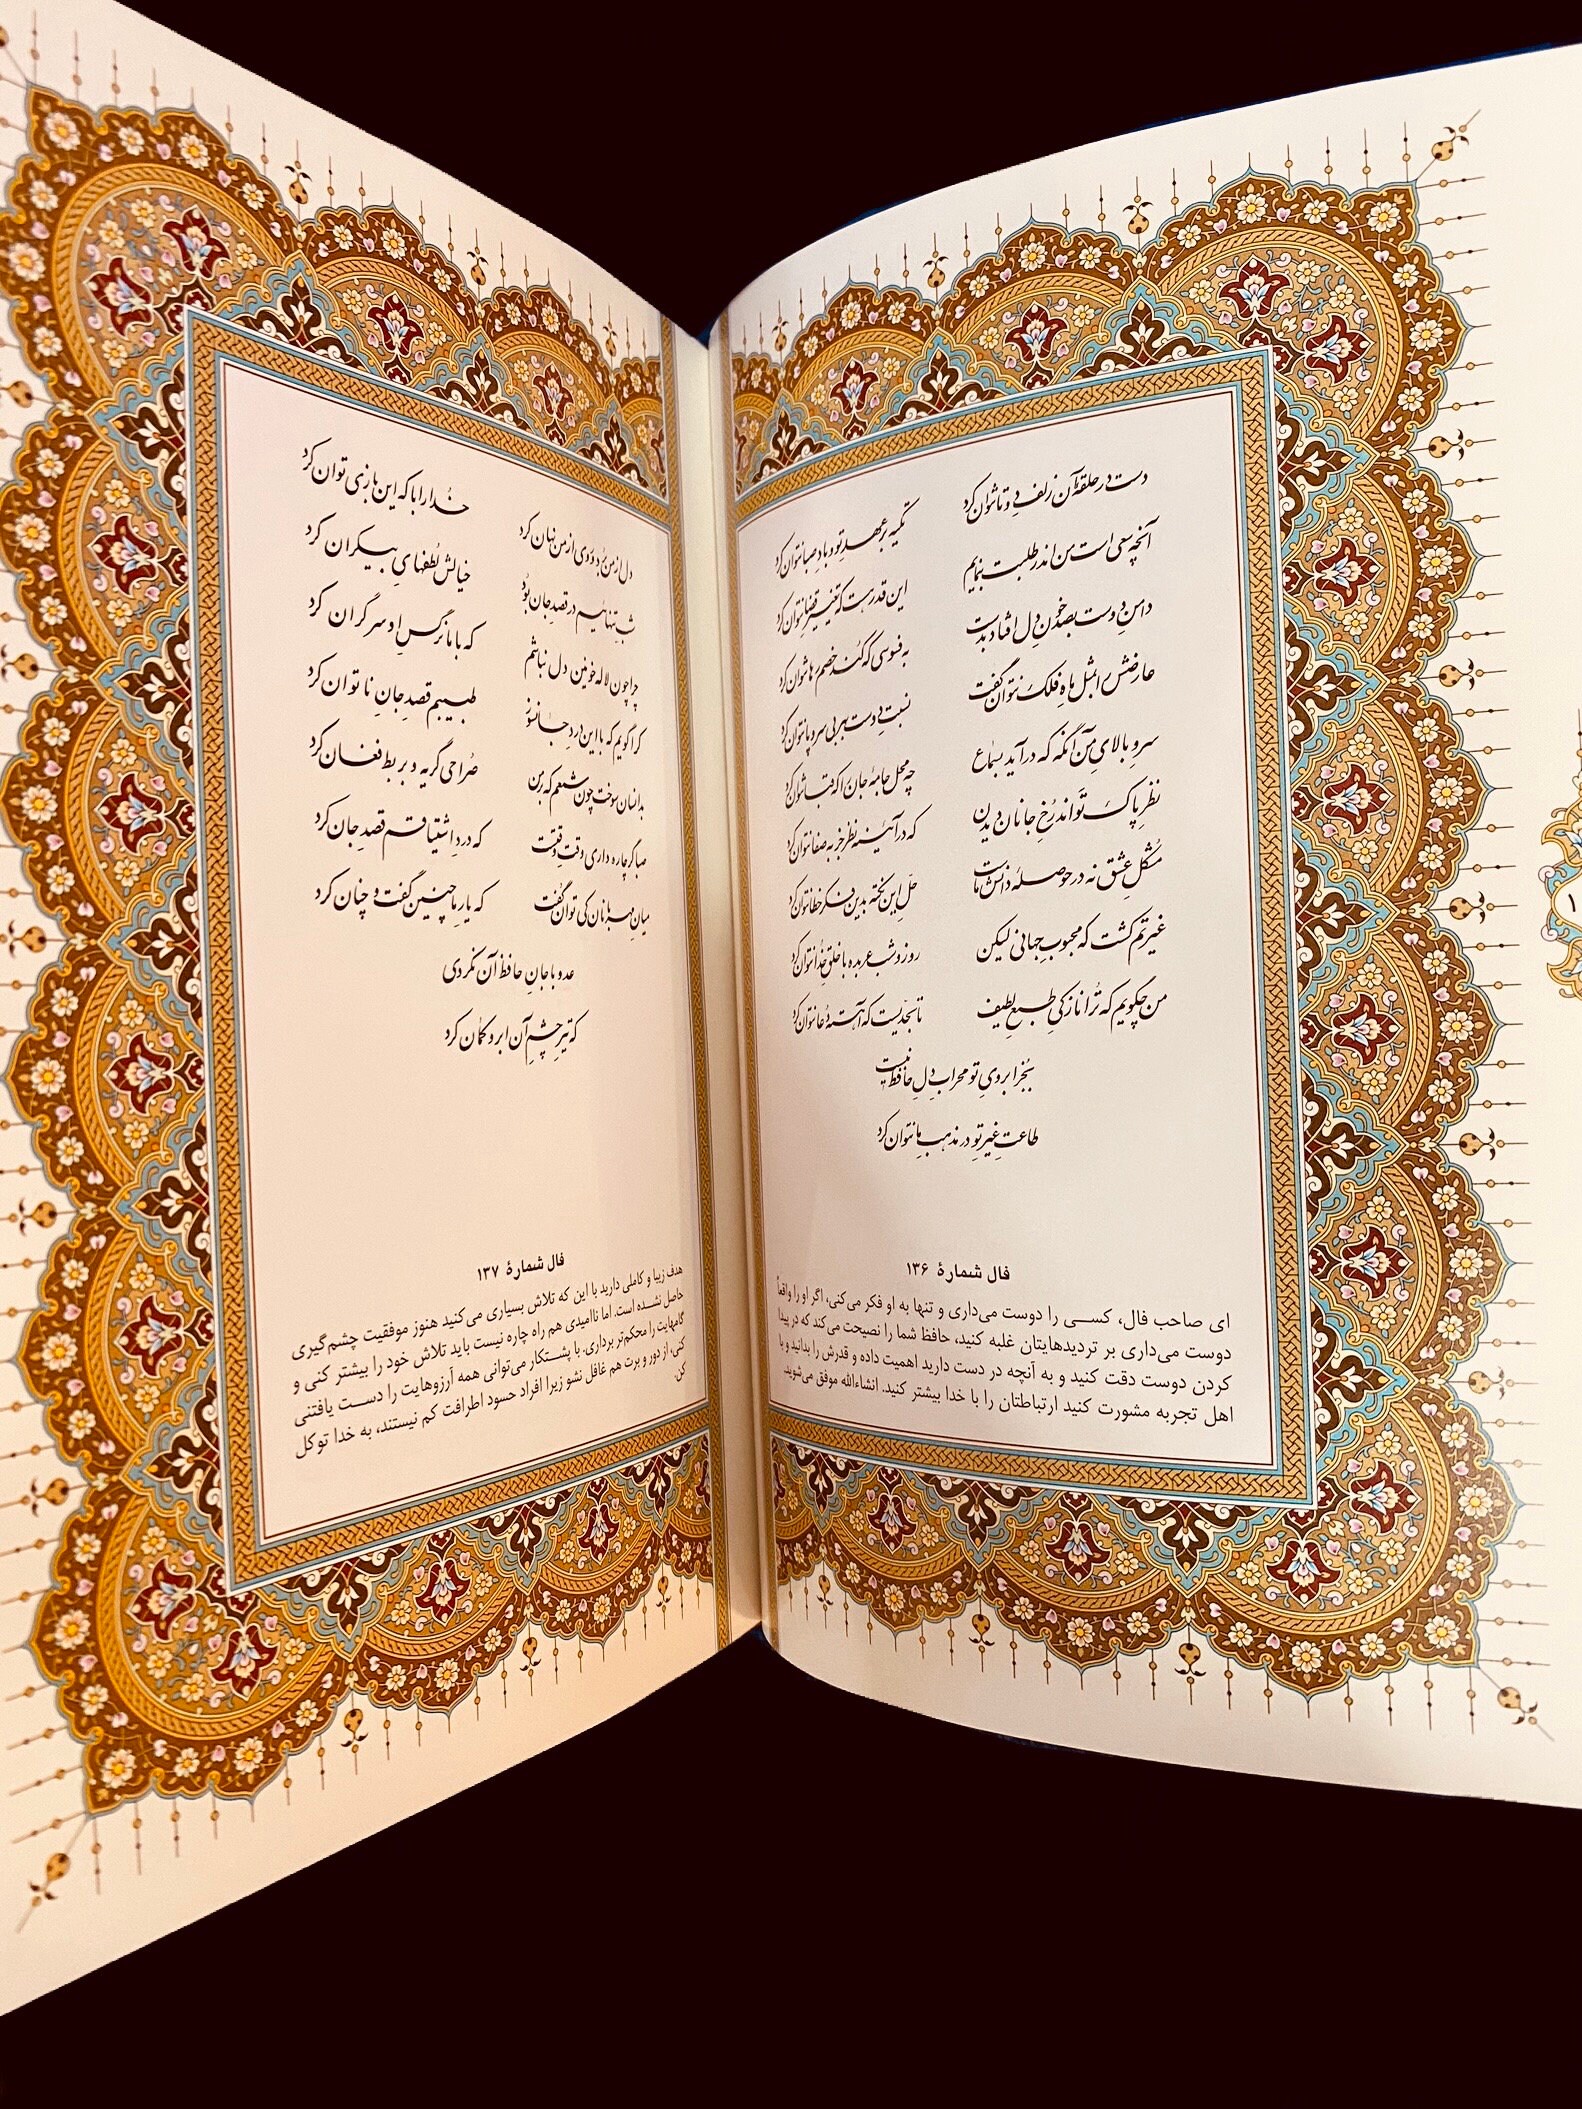 دست در حلقهٔ آن زلفِ دوتا نتوان کرد
تکیه بر عهدِ تو و بادِ صبا نتوان کرد
آنچه سعی است من اندر طلبت بنمایم
این قدر هست که تغییرِ قضا نتوان کرد
دامنِ دوست بصد خونِ دل افتاد بدست
به فسوسی که کُند خصم رها نتوان کرد
عارضش را بمثل ماهِ فلک نتوان گفت
نسبتِ دوست بهر بی سر و پا نتوان کرد
سروِ بالایِ من آنگه که در آید بسماع
چه محل جامهٔ جان را که قبا نتوان کرد
نظرِ پاک تواند رُخِ جانان دیدن
که در آیینه نظر جز به صفا نتوان کرد
مُشکلِ عشق نه در حوصلهٔ دانشِ ماست
حلِّ این نکته بدین فکرِ خطا نتوان کرد
غیرتم کُشت که محبوبِ جهانی لیکن
روز و شب عربده با خلقِ خُدا نتوان کرد
من چگویم که تُرا نازکیِ طبعِ لطیف
تا بحدّیست که آهسته دُعا نتوان کرد
بجُز ابرویِ تو محرابِ دلِ حافظ نیست
طاعتِ غیرِ تو در مذهبِ ما نتوان کرد
فال شمارهٔ ۱۳۶
ای صاحب فال، کسی را دوست می‌داری و تنها به او فکر می‌کنی، اگر او را واقعاً
دوست می‌داری بر تردیدهایتان غلبه کنید، حافظ شما را نصیحت می‌کند که در پیدا
کردن دوست دقت کنید و به آنچه در دست دارید اهمیت داده و قدرش را بدانید و با
اهل تجربه مشورت کنید ارتباطتان را با خدا بیشتر کنید. انشاءالله موفق می‌شوید.
۱
دل از من بُرد و روی از من نهان کرد
خُدا را با که این بازی توان کرد
شبِ تنهاییم در قصدِ جان بُود
خیالش لُطفهایِ بیکران کرد
چرا چون لاله خونین دل نباشم
که با ما نرگسِ او سرگران کرد
کرا گویم که با این دردِ جانسُوز
طبیبم قصدِ جانِ ناتوان کرد
بدانسان سوخت چون شمعم که بر من
صُراحی گریه و بربط فغان کرد
صبا گر چاره داری وقتِ وقتست
که دردِ اشتیاقم قصدِ جان کرد
میانِ مهربانان کی توان گُفت
که یارِ ما چنین گفت و چنان کرد
عدو با جانِ حافظ آن نکردی
که تیرِ چشمِ آن ابرو کمان کرد
فال شمارهٔ ۱۳۷
هدف زیبا و کاملی دارید با این که تلاش بسیاری می‌کنید هنوز موفقیت چشم‌گیری
حاصل نشده است. اما ناامیدی هم راه چاره نیست باید تلاش خود را بیشتر کنی و
گامهایت را محکم‌تر برداری. با پشتکار می‌توانی همه آرزوهایت را دست یافتنی
کنی، از دور و برت هم غافل نشو زیرا افراد حسود اطرافت کم نیستند، به خدا توکل
کن.